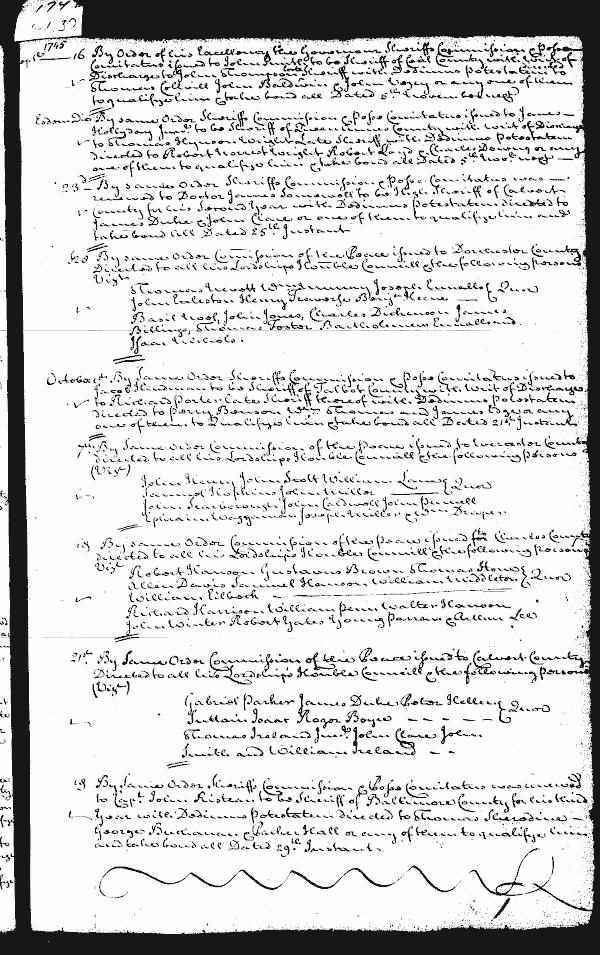 1745
16 By Order of his Excellency the Governor Sheriffs Commission & Posse
Comitatus issued to John Smith to be Sheriff of Cecil County with Writ of
Discharge to John Thompson late Sheriff with Dedimus Potestatem to
Thomas Colvill John Baldwin & John Veazey or any one of them
to qualifye him & take bond all Dated 5th
Eodem Die By same Order Sheriffs Commission & Posse Comitatus issued to James
Hollyday Junr to be Sheriff of Queen Anns County with Writ of Discharge
to Thomas Hynson Wright Late Sheriff with Dedimus Potestatem
directed to Robert Norrest Wright Robert & Charles Downs or any
one of them to qualifye him & take bond all Dated 5th
23d By same Order Sheriffs Commission & Posse Comitatus was
renewed to Doctor James Somervell to be High Sheriff of Calvert
County for his Second Year with Dedimus Potestatem directed to
James Duke & John Clare or one of them to qualifye him and
take bond all Dated 25th Instant
By same Order Commission of the Peace issued to Dorchester County
Directed to all his Lordships Honble Councill & the following persons
Vizt
Thomas Nevett Joseph Ennalls Quor
John Eccleston Henry Traverse Benja Keene
Basil Noel, John Jones, Charles Dickinson James
Billings, Thomas Foster Bartholomew Ennalls and
Isaac Nicholls.
October 1st By Same Order Sheriffs Commission & Posse Comitatus issued to
Jacob Hindman to be Sheriff of Talbot County with Writ of Discharge
to Richard Porter late Sheriff thereof with Dedimus Potestatem
directed to Perry Benson Wm Thomas and James or any
one of them to Qualifye him & take bond all Dated 21st Instant
7th By Same Order Commission of the Peace issued to Worcester County
directed to all his Lordships Honble Councill & the following persons
(Vizt)
John Henry John Scott William Laney Quor
Samuel Hopkins John Miller
John Scarborough John Caldwell John Purnell
Ephraim Waggaman Joseph Miller & Wm Draper
18 By same Order Commission of the Peace issued for Charles County
directed to all his Lordships Honble Councill & the following persons
Vizt
Robert Hanson Gustavus Brown Thomas Stone
Allen Davis Samuel Hanson William Middleton Quor
William Eilbeck
Richard Harrison William Penn Walter Hanson
John Winter Robert Yates Young Parran & Lee
21st By Same Order Commission of the Peace issued to Calvert County
Directed to all his Lordships Honble Councill & the following persons
(Vizt)
Gabriel Parker James Duke Peter Hellen Quor
Suttain Isaac Roger Boyce
Thomas Ireland Junr John Clare John
Smith and William Ireland
By Same Order Sheriffs Commission & Posse Comitatus was renewed
to Capt John Risteau to be Sheriff of Baltimore County for his third
Year with Dedimus Potestatem directed to Thomas Sheredine
George Buchanan & Parker Hall or any of them to qualifye him
and take bond all Dated 29th Instant.